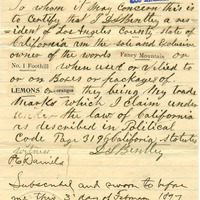 To whom it May Concern this is
to Certify that I D S Bentley a res-
ident of Los Angeles County state of
California am the sole and Exclusive
owner of the words Fancy Mountain or
No. 1 Foothill when used or affixed to
or on Boxes or packages of
LEMONS or oranges they being My Trade
Marks which I claim under
under the law of California
as described in Political
Code Page 3196 California Statutes
witness D S Bentley
P C Daniels
Subscribed and sworn to before
me this 3d day of February 1897